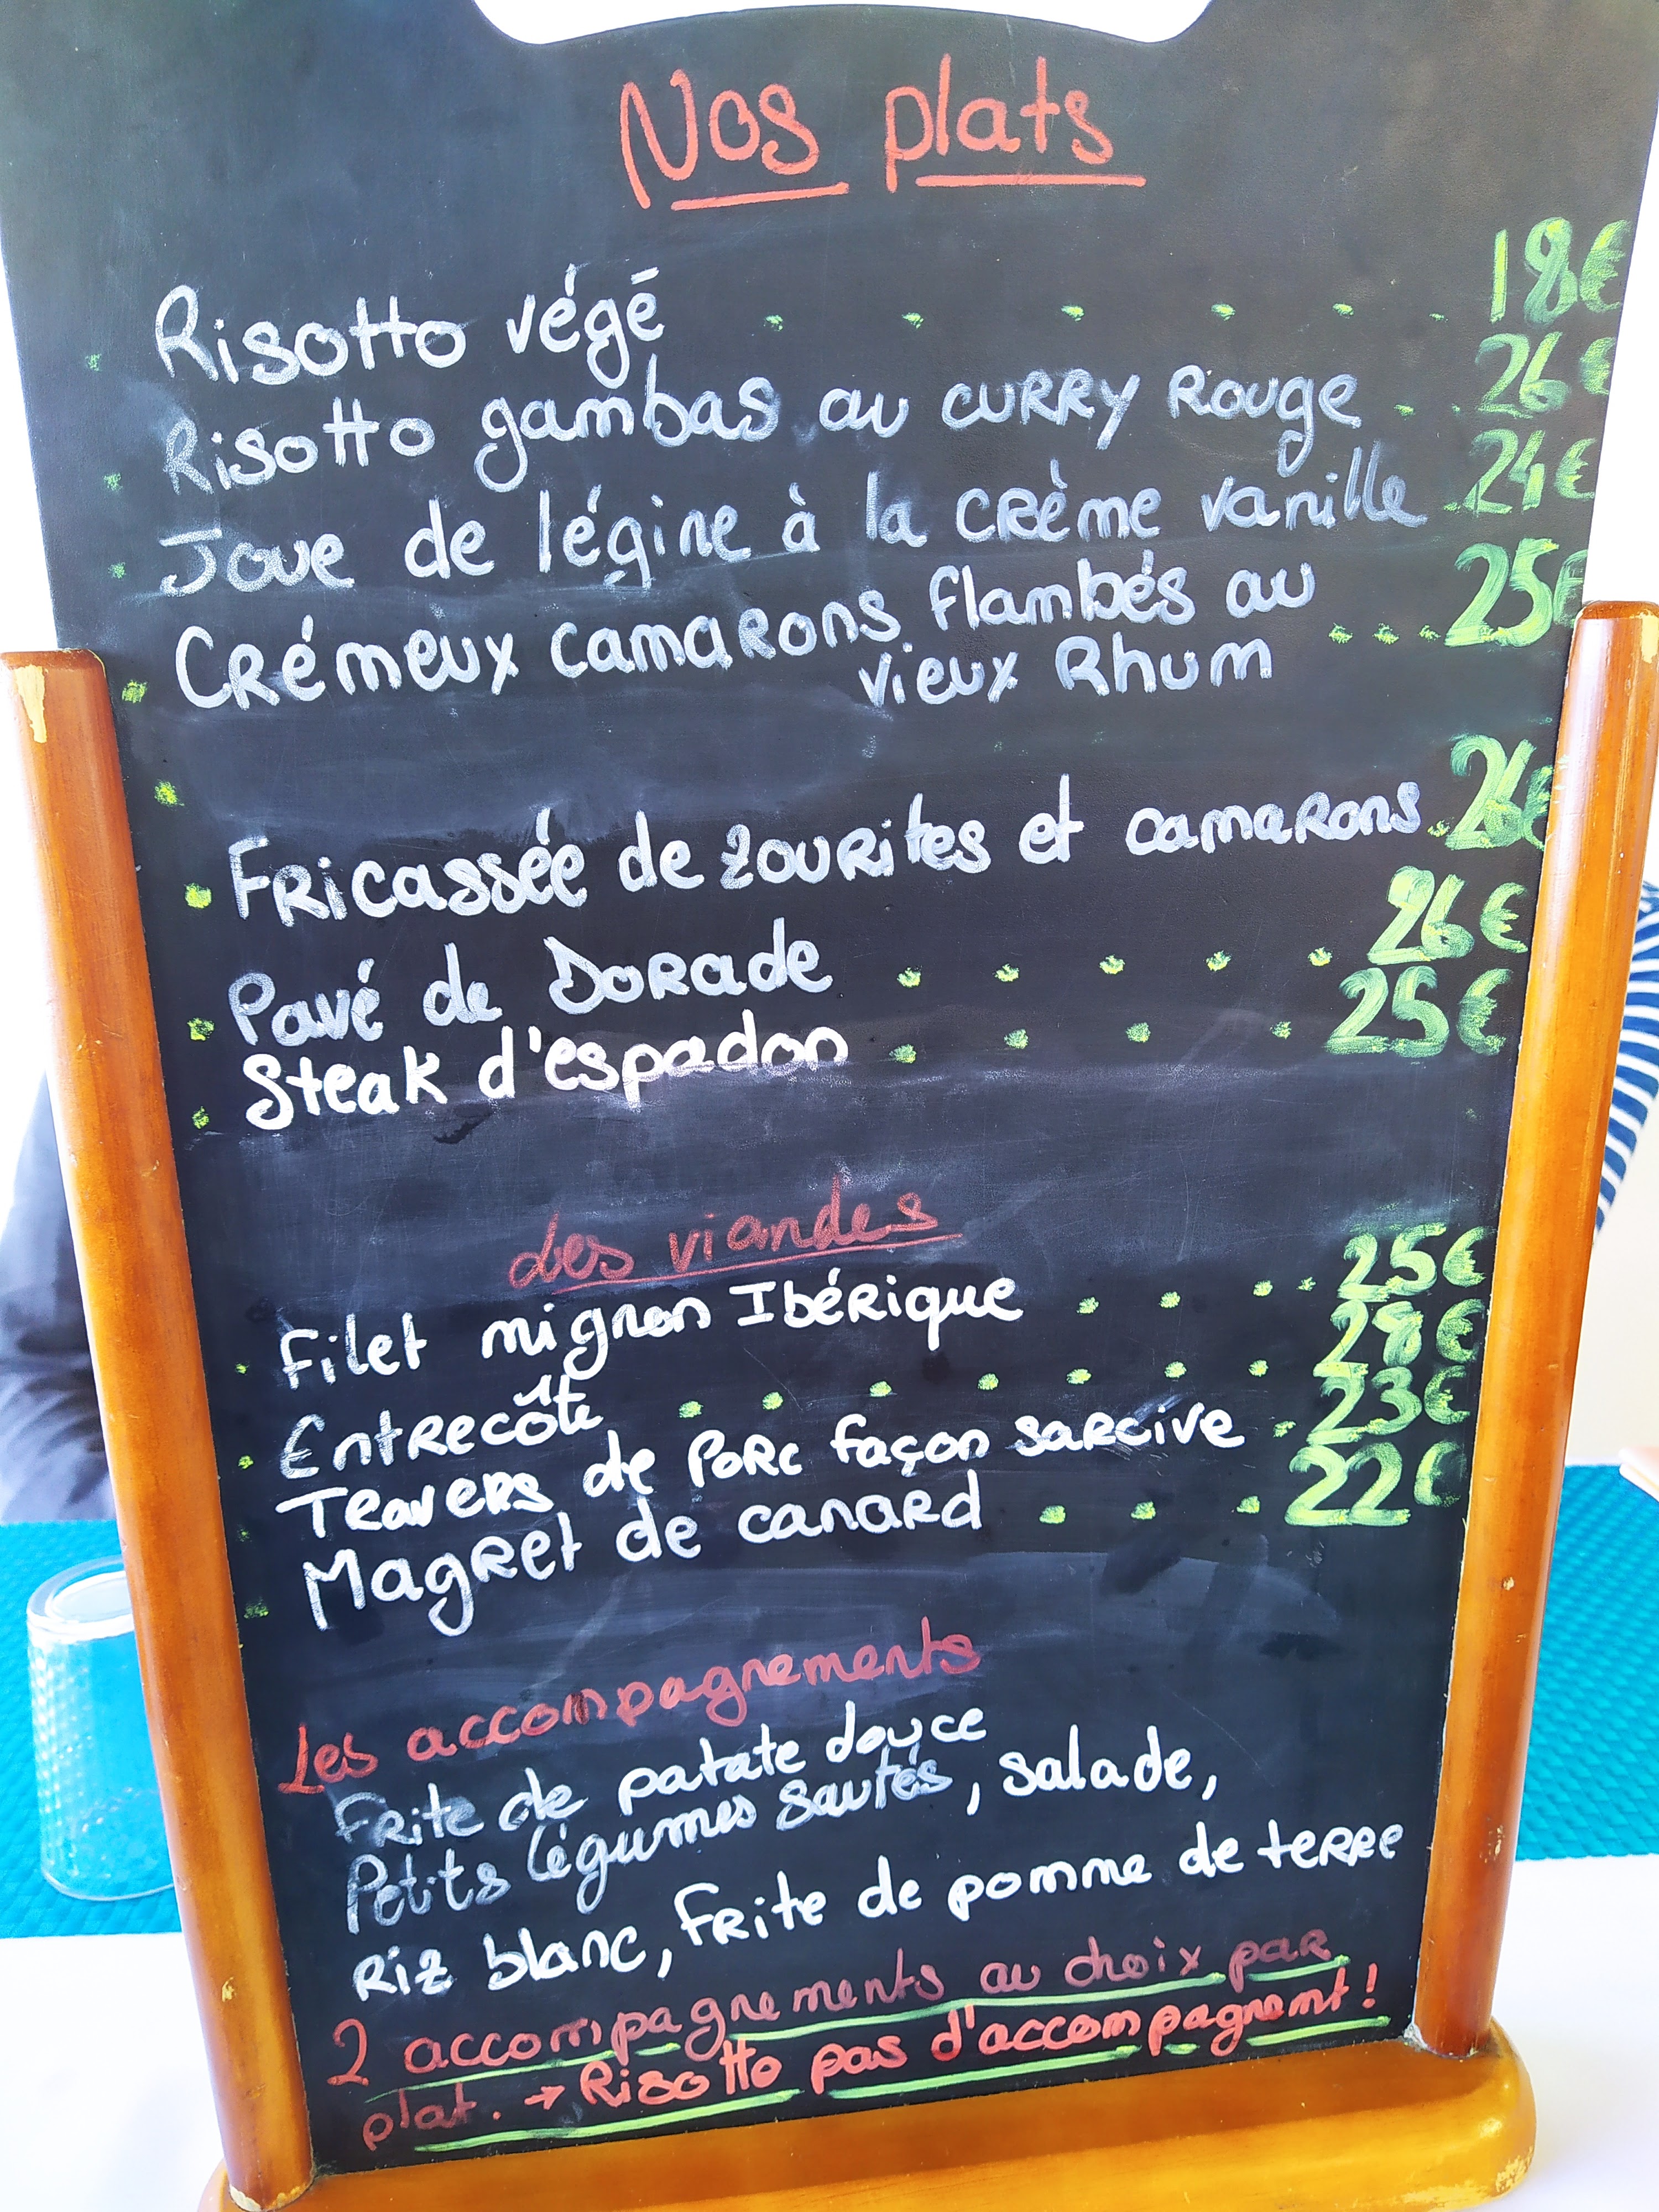 Nos plats
Risotto végé 18€
Risotto gambas au curry Rouge 26€
Joue de légine à la crème vanille 24€
Crémeux camarons flambés au 25€
vieux Rhum
Fricassée de zourites et camarons 26€
Pavé de Dorade 26€
Steak d'espadon 25€
Les viandes
Filet mignon Ibérique 25€
Entrecôte 28€
Travers de Porc façon sarcive 23€
Magret de canard 22€
Les accompagnements
Frite de patate douce
Petits légumes sautés, salade,
Riz blanc, Frite de pomme de terre
2 accompagnements au choix par
plat. → Risotto pas d'accompagnemt !